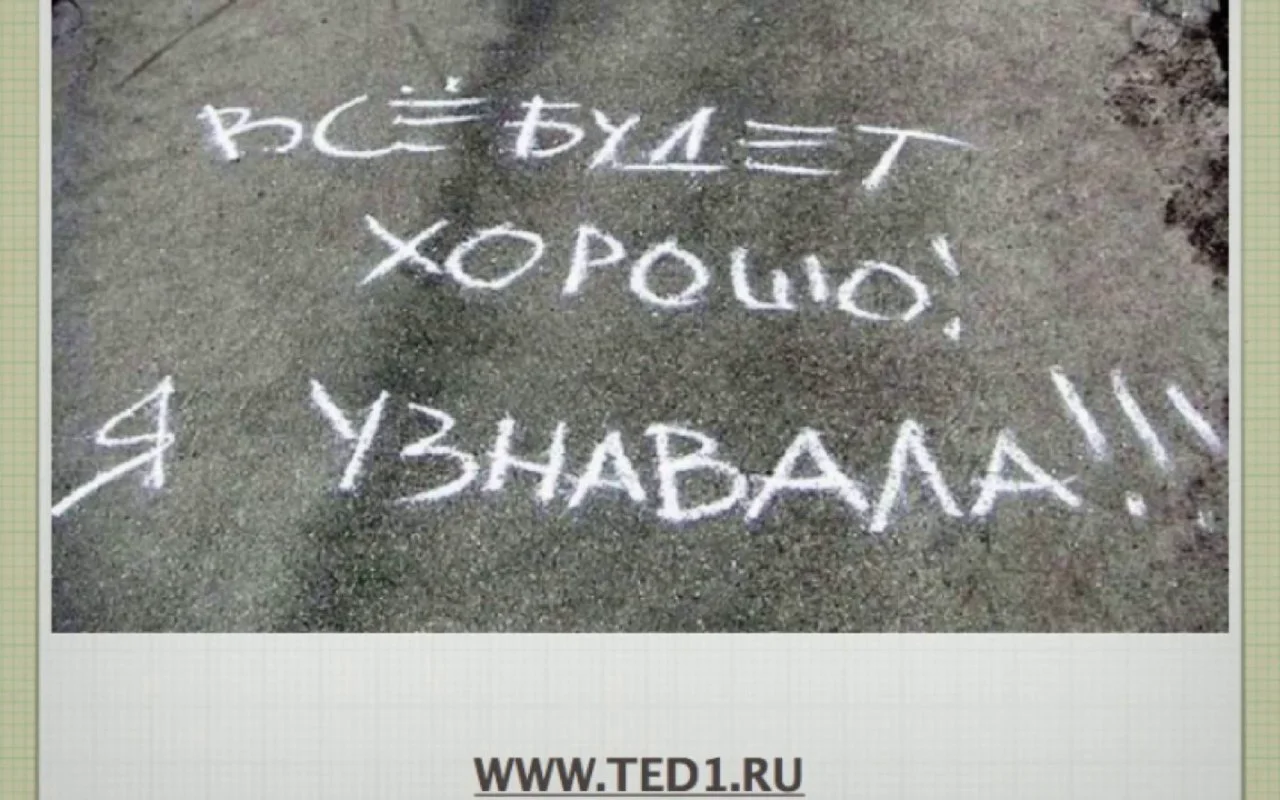 ВСЁ БУДЕТ
ХОРОШО!
Я УЗНАВАЛА!!!
WWW.TED1.RU